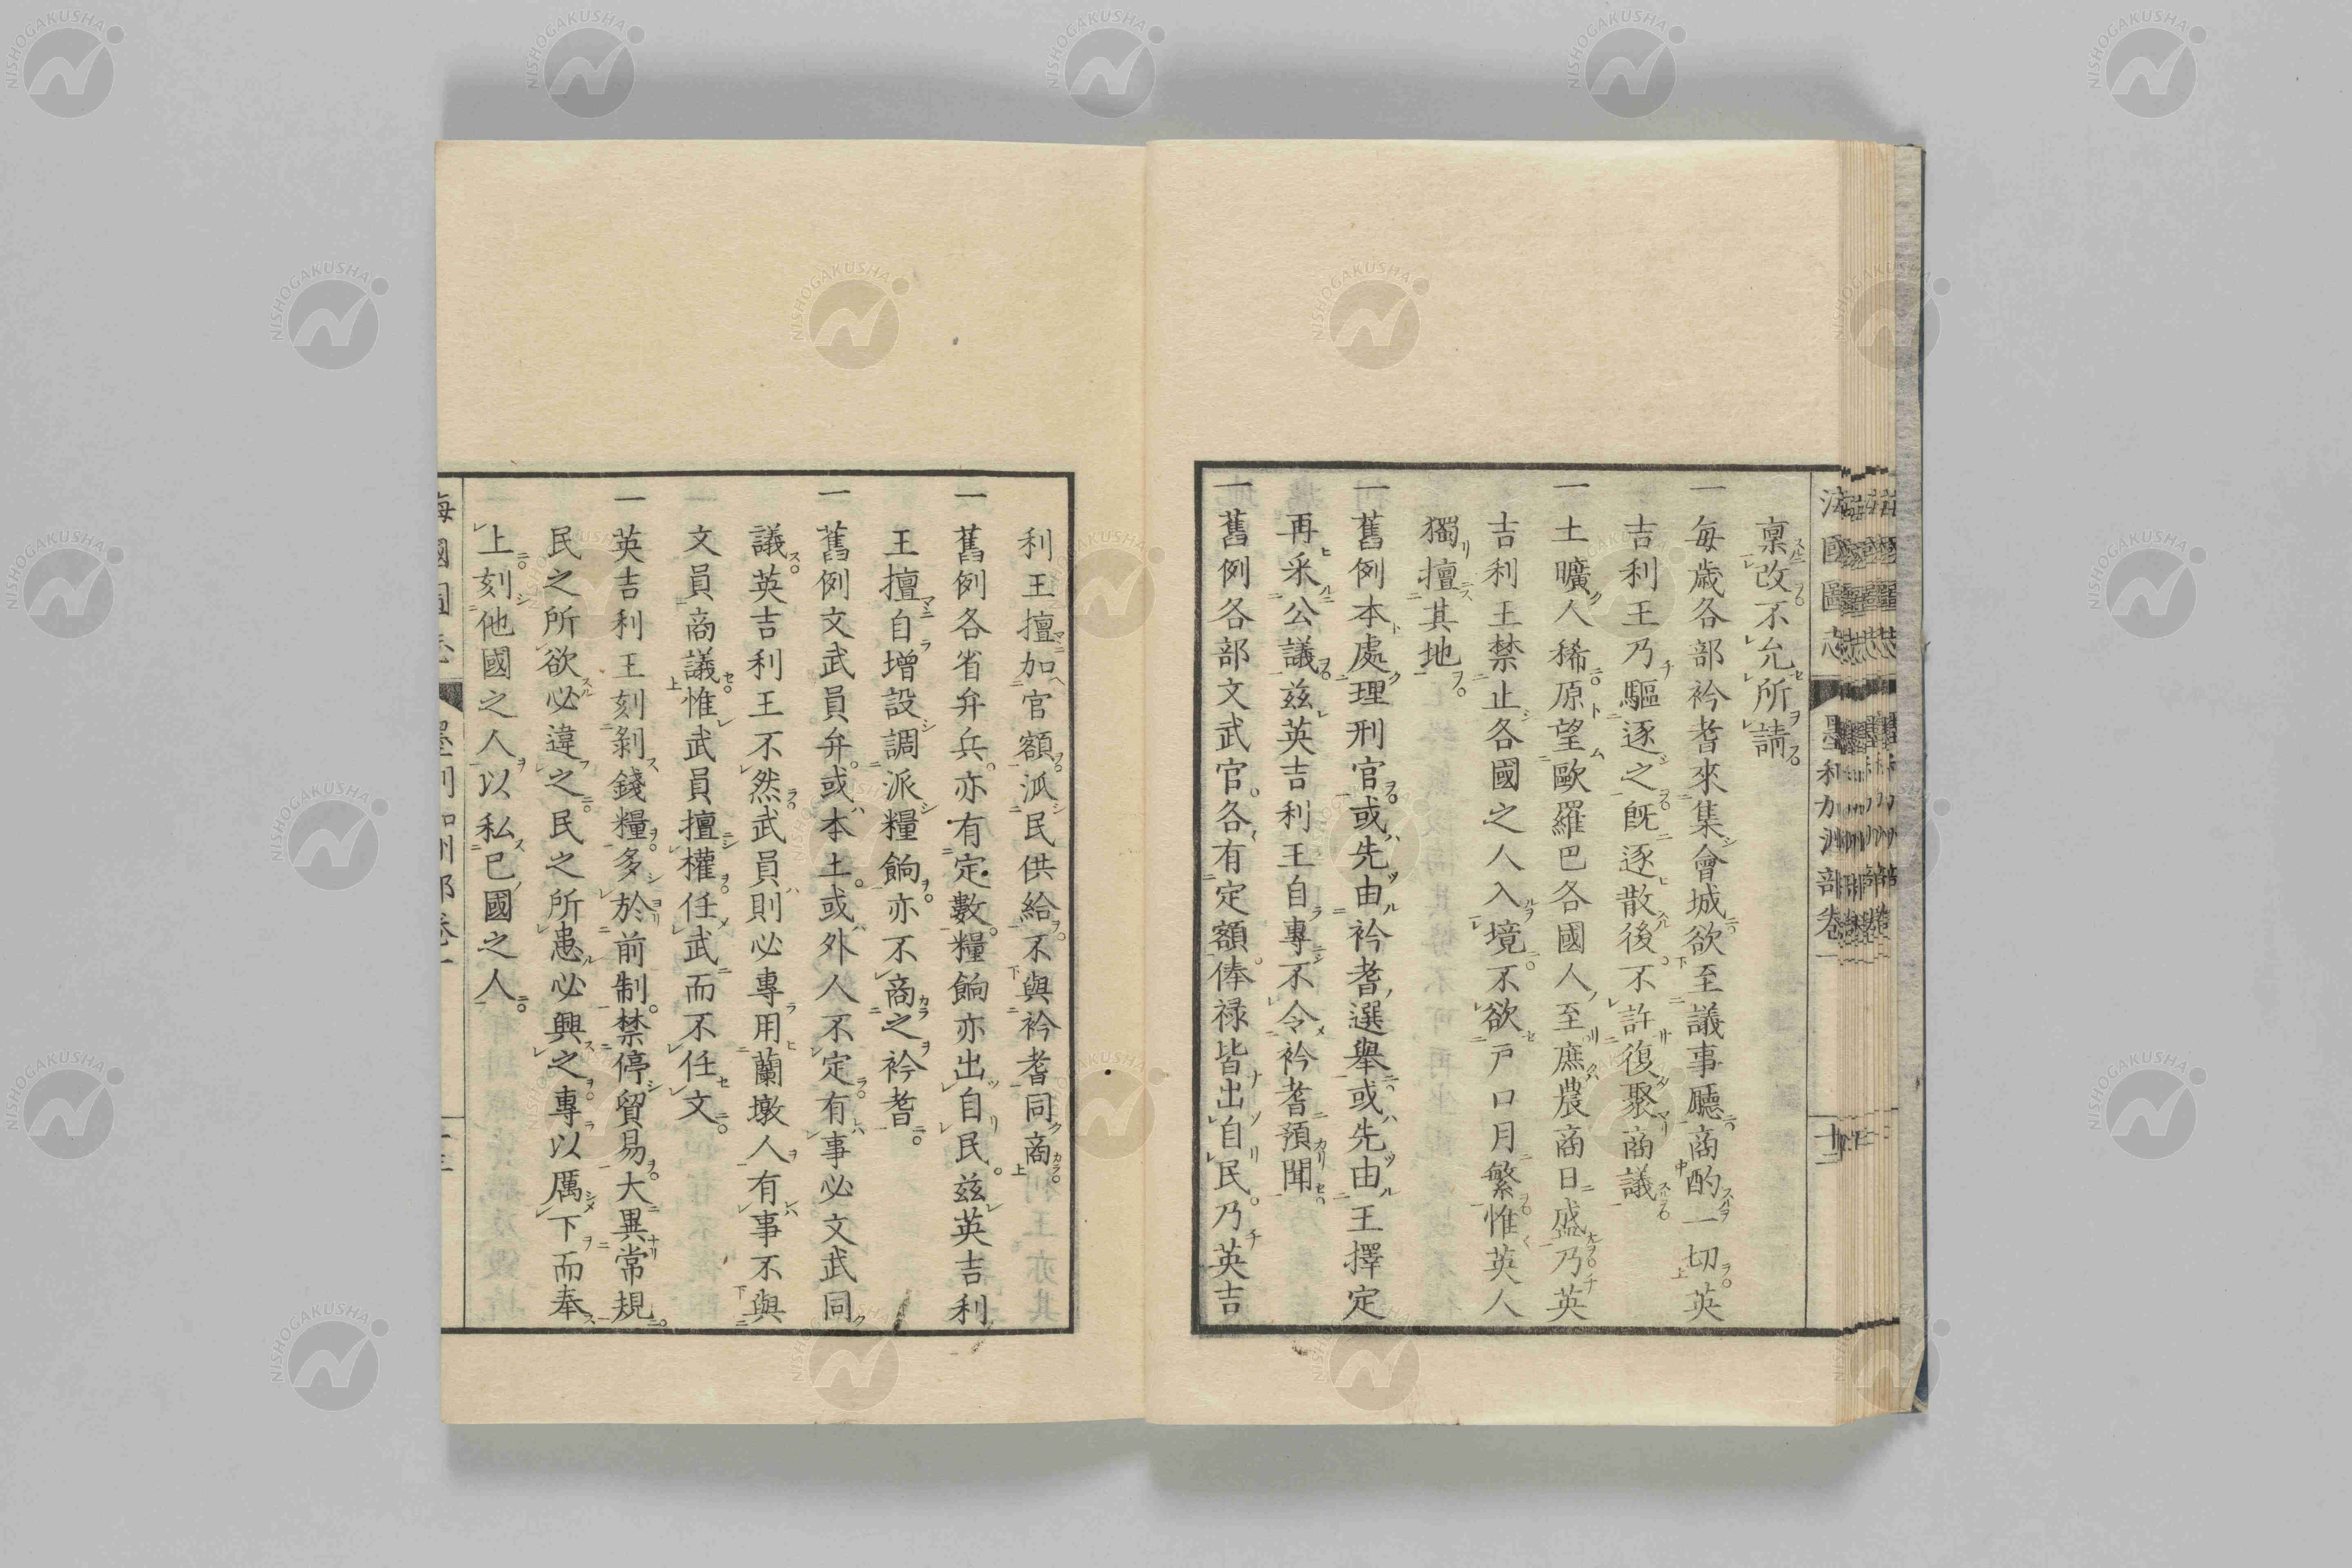 海國圖志
墨利加洲部卷一
十二
稟改不允所請
一每歲各部衿耆來集會城欲至議事廳商酌一切英
吉利王乃驅逐之旣逐散後不許復聚商議
一土曠人稀原望歐羅巴各國人至庶農商日盛乃英
吉利王禁止各國之人入境不欲戸口月繁惟英人
獨擅其地
一舊例本處理刑官或先由衿耆選舉或先由王擇定
再釆公議茲英吉利王自專不令衿耆預聞
一舊例各部文武官各有定額俸祿皆出自民乃英吉
利王擅加官額派民供給不與衿耆同商
一舊例各省弁兵亦有定數糧餉亦出自民茲英吉利
王擅自增設調派糧餉亦不商之衿耆
一舊例文武員弁或本土或外人不定有事必文武同
議英吉利王不然武員則必專用蘭墩人有事不與
文員商議惟武員擅權任武而不任文
一英吉利王刻剝錢糧多於前制禁停貿易大異常規
民之所欲必違之民之所患必興之專以厲下而奉
上刻他國之人以私已國之人
NISHOGAKUSHA